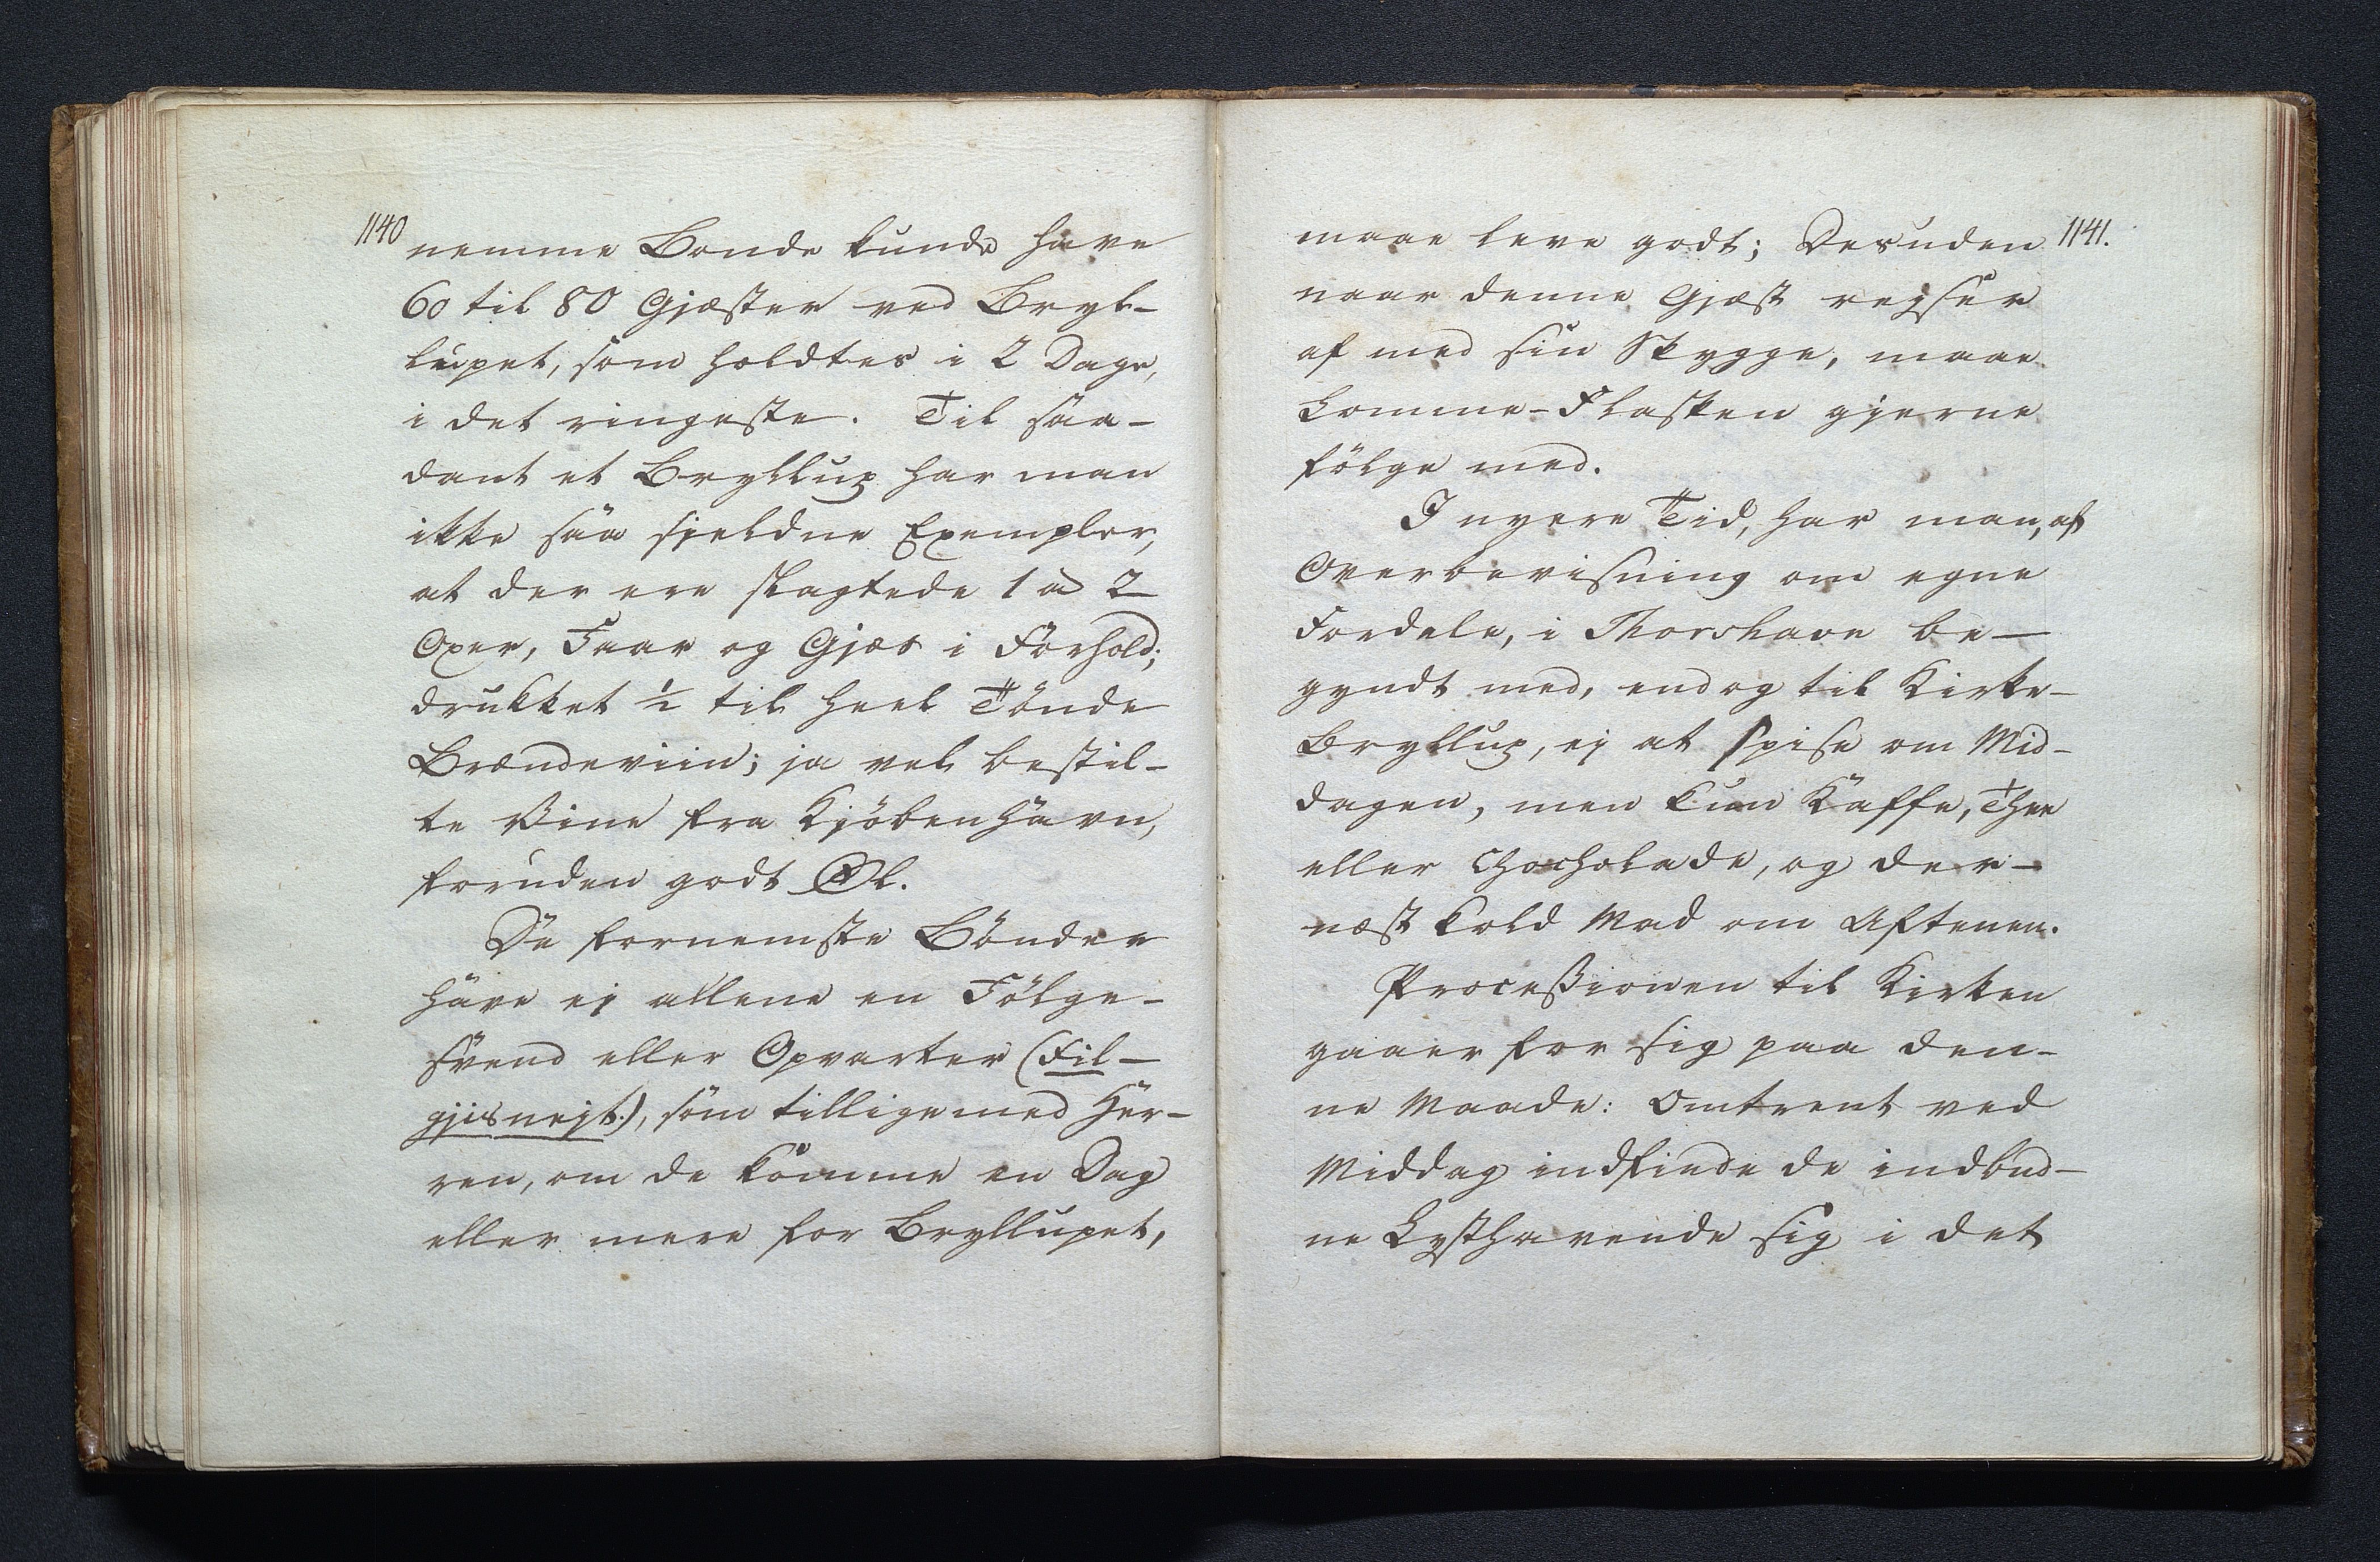 1140
nemme Bonde kunde have
60 til 80 Gjæster ved Bryl-
lupet, som holdtes i 2 Dage,
i det ringeste. Til saa-
dant et Bryllup har man
ikke saa sjeldne Exempler,
at der ere slagtede 1 à 2
Oxer, Faar og Gjæs i Forhold;
drukket ½ til heel Tönde
Brændeviin; ja vel bestil-
te Vine fra Kjöbenhavn,
foruden godt Øl.
De fornemste Bönder
have ej allene en Fölge-
svend eller Opvarter (Fil-
gjisnejt.), som tilligemed Her-
ren, om de komme en Dag
eller mere for Bryllupet,
1141.
maae leve godt; Desuden
naar denne Gjæst rejser
af med sin Skygge, maae
Lomme-Flasken gjerne
fölge med.
I nyere Tid, har man, af
Overbevisning om egne
Fordele, i Thorshavn be-
gyndt med, endog til Kirke-
Bryllup, ej at spise om Mid-
dagen, men kun Kaffe, Thee
eller Chocholade, og der-
næst kold Mad om Aftenen.
Processionen til Kirken
gaaer for sig paa den-
ne Maade: Omtrent ved
Middag indfinde de indbud-
ne Lysthavende sig i det